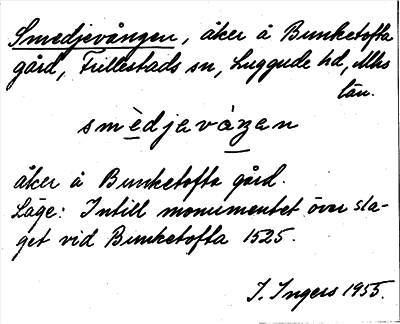 Smedjevången, åker å Bunketofta
gård, Fullestads sn, Luggude hd, Mhs
län.
smèdjavåŋan
åker å Bunketofta gård.
Läge: Intill monumentet över sla-
get vid Bunketofta 1525.
I. Ingers 1955.